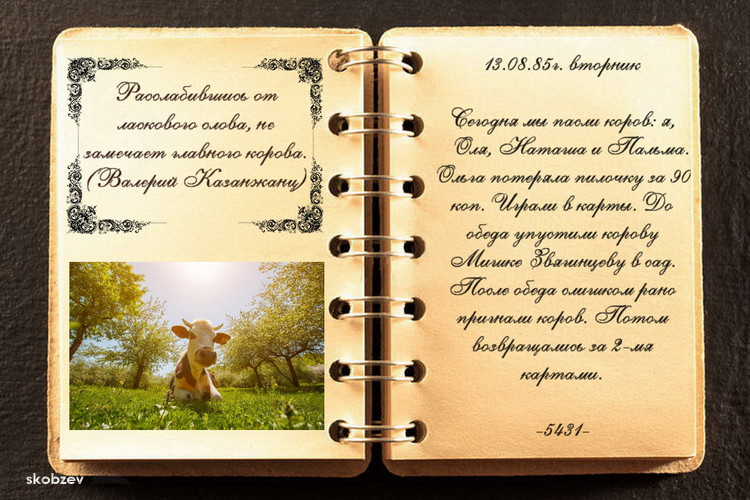 Расслабившись от
ласкового слова, не
замечает главного корова.
(Валерий Казанжанц)
13.08.85г. вторник
Сегодня мы пасли коров: я,
Оля, Наташа и Пальма.
Ольга потеряла пилочку за 90
коп. Играли в карты. До
обеда упустили корову
Мишке Звягинцеву в сад.
После обеда слишком рано
пригнали коров. Потом
возвращались за 2-мя
картами.
-5431-
skobzev